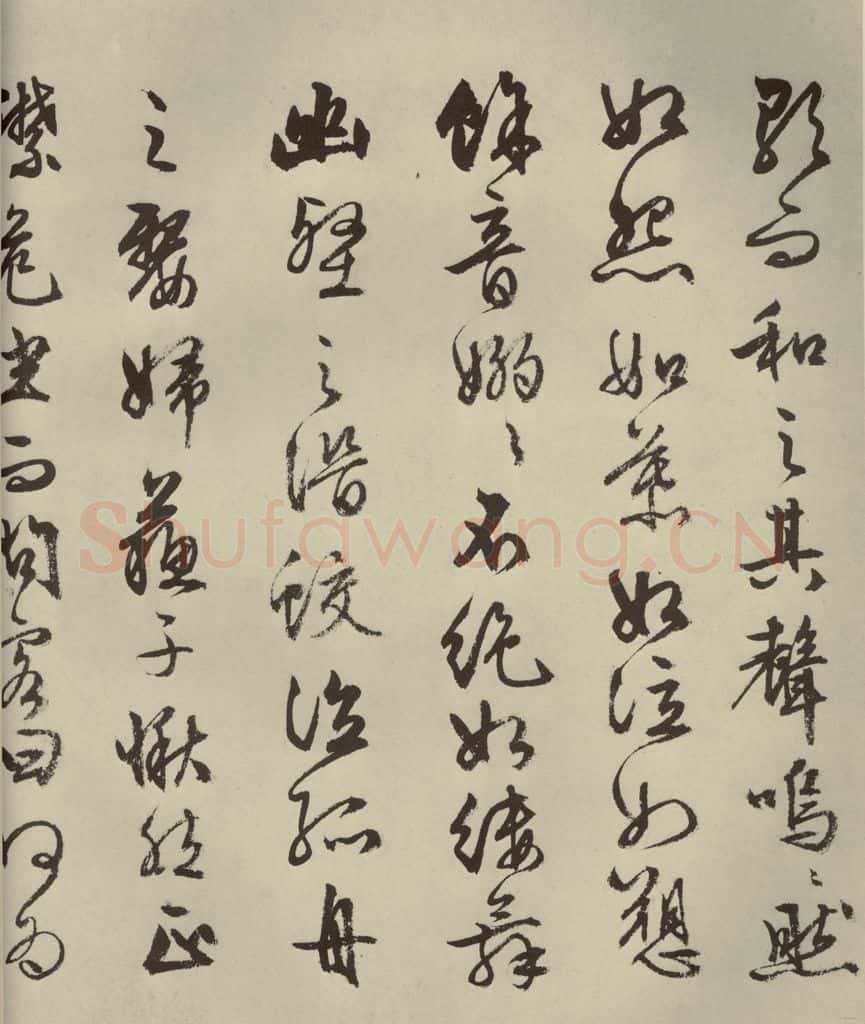 歌而和之其聲嗚〻然
如怨如慕如泣如愬
餘音嫋〻不絕如縷舞
幽壑之潛蛟泣孤舟
之嫠婦蘇子愀然正
襟危坐而問客曰何為
Shufawang.CN